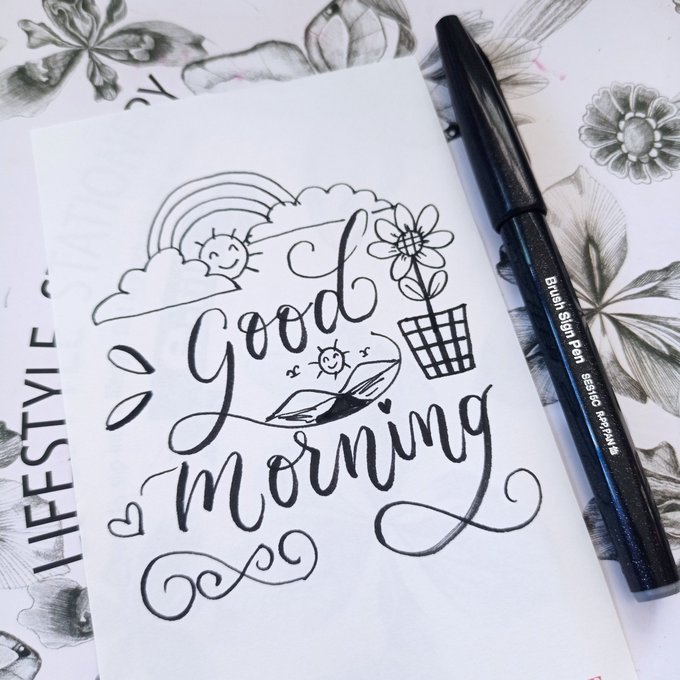 good
morning
Brush Sign Pen
SES15C
LIFESTYLE